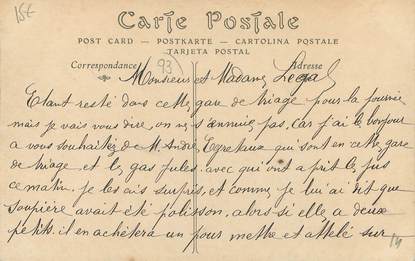 15€
Carte Postale
POST CARD — POSTKARTE — CARTOLINA POSTALE
TARJETA POSTAL
Correspondance
Adresse
93
Monsieur et Madame Legal
Etant resté dans cette gare de triage pour la journée
mais je vais vous dire, on ne s'ennuie pas, car j'ai le bonjour
a vous souhaiter de M André, qui sont en cette gare
de triage et les gas Jules. avec qui ont a prit le jus
ce matin. je les ais surpris, et comme je lui ai dit que
soupière avait été polisson, alors si elle a deux
petits. il en achètera un pour mettre et attelé sur